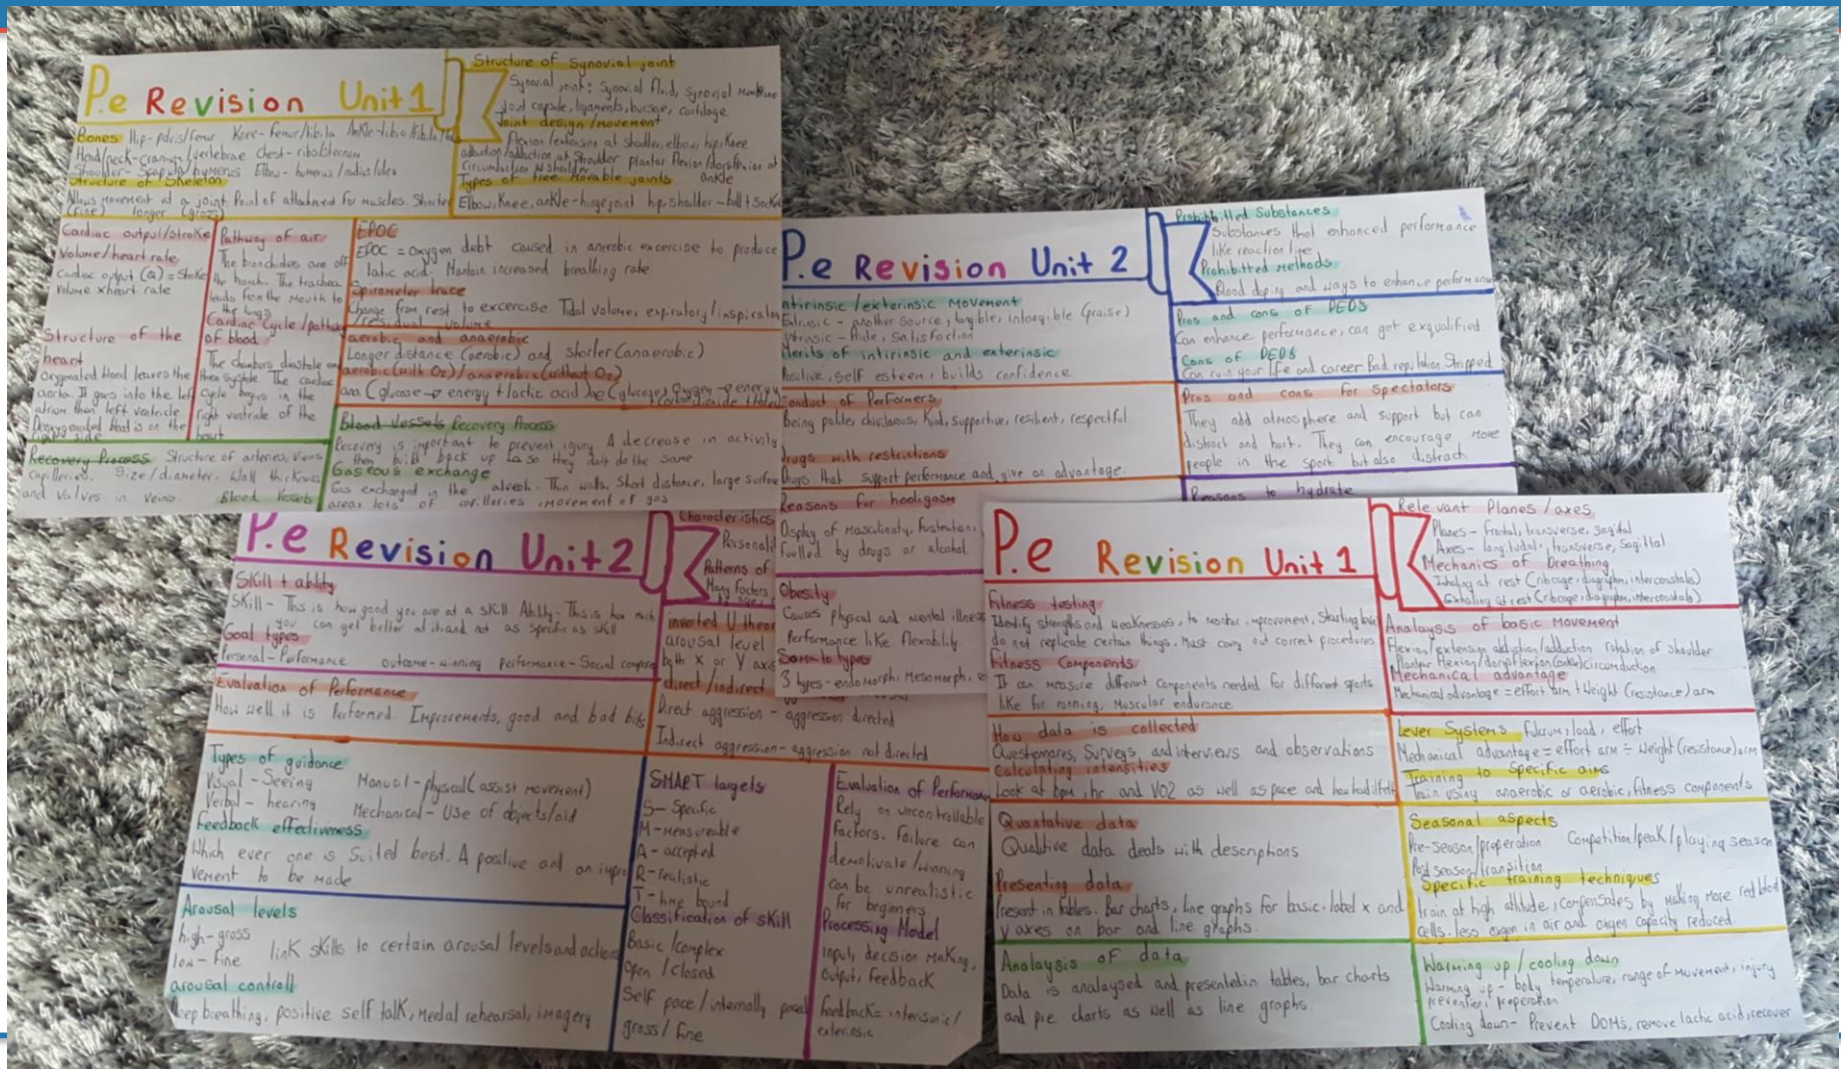 P.e Revision Unit 1
Bones Hip-pelvis/femur Knee-femur/tibila Ankle-tibia/fibila/
Head/neck-cranium/vertebrae Chest-ribs/sternum
Shoulder-Scapula/humerus Elbow-humerus/radius/ulna
Structure of Skeleton
Allows movement at a joint. Point of attatchment for muscles. Shorter
(fine) longer (gross)
Structure of Synovial joint
Synovial joint: Synovial fluid, synovial membrane
joint capsule, ligaments, bursae, cartilage
Joint design/movement
Flexion/extension at shoulder, elbow, hip, Knee
abduction/adduction at Shoulder plantar flexion/dorsiflexion at
Circumduction at shoulder ankle
Types of free Movable joints
Elbow, Knee, ankle-hinge joint hip, shoulder-ball + Socket
Cardiac output/stroke
Volume/heart rate
cardiac output (Q) = Stroke
volume x heart rate
Structure of the
heart
Oxygenated blood leaves the
aorta. It goes into the left
atrium then left ventricle
Pathway of air
The bronchioles are off
the bronchi. The trachea
leads from the mouth to
the lungs
Cardiac Cycle/pathway
of blood
The chambers diastole and
then systole The cardiac
cycle begins in the
right ventricle of the
heart
EPOC
EPOC = oxygen debt caused in anerobic excercise to produce
latic acid. Mantain increased breathing rate
Spirometer trace
Change from rest to excercise Tidal volume, expiratory/inspirator
/residual volume
aerobic and anaerobic
Longer distance (aerobic) and shorter (anaerobic)
aerobic (with O2)/anaerobic (without O2)
ana (glucose → energy + lactic acid) ae (glucose + Oxygen → energy
Recovery Process Structure of arteries, veins
capilleries. Size/diameter, Wall thickness
and valves in veins. Blood vessels
Blood Vessels Recovery Process
Recovery is important to prevent injury A decrease in activity
then build back up so they don't do the same
Gaseous exchange
Gas exchanged in the alveoli. Thin walls, Short distance, large surface
area, lots of capilleries, movement of gas
P.e Revision Unit 2
Intirinsic/exterinsic Movement
Extrinsic - another source, tangible, intangible (praise)
Intrinsic - Pride, satisfaction
Merits of intirinsic and exterinsic
Positive, self esteem, builds confidence
Conduct of Performers
Being polite, chivilarous, Kind, supportive, resilient, respectful
drugs with restrictions
Drugs that support performance and give an advantage.
Reasons for hooligasm
Display of Masculinaty, frustration,
fuelled by drugs or alcohol.
Obesity
Causes physical and mental illness
Performance like flexability
Somato types
3 types-endomorph, Mesomorph, e
Prohibitted Substances
Substances that enhanced performance
like reaction time
Prohibitted Methods
Blood doping and ways to enhance performance
Pros and cons of PEDS
Can enhance performance, can get exqualified.
Cons of PEDS
Can ruin your life and career Bad reputation. Stripped
Pros and cons for spectators
They add atmosphere and support but can
distract and hurt. They can encourage more
people in the sport but also distract.
Reasons to hydrate
P.e Revision Unit 2
Skill + ability
Skill - This is how good you are at a skill Ability - This is how much
you can get better at it and not as specific as skill
Goal types
Personal-Performance outcome-winning performance-Social compare
Evaluation of Performance
How well it is Performed Improvements, good and bad bits
Types of guidance
Visual - Seeing Manual - physical (assist movement)
Verbal - hearing Mechanical - Use of objects/aid
Feedback effectiveness
Which ever one is Suited best. A positive and an impro
vement to be made
Arousal levels
high-gross
low-fine link skills to certain arousal levels and actions
arousal controll
Deep breathing, positive self talk, mental rehearsal, imagery
Characteristics
Personali
Patterns of
Many factors
inverted U theor
arousal level
both X or Y axis
direct/indirect
Direct aggression - aggression directed
Indirect aggression - aggression not directed
SMART targets
S- Specific
M- Measureable
A- accepted
R- realistic
T- time bound
Classification of skill
Basic/complex
Open/Closed
Self pace/internally paced
gross/fine
Evaluation of Performance
Rely on uncontrollable
factors. Failure can
demotivate/winning
can be unrealistic
for beginners
Processing Model
Input, decision making,
Output, feedback
feedback = intersinic/
extensic
P.e Revision Unit 1
Fitness testing
Identify strengths and weaknesses, to monitor improvement, Starting level
do not replicate certain things. Must carry out correct procedures.
Fitness Components
It can measure different components needed for different sports
like for running, Muscular endurance
How data is collected
Questionares, Surveys, and interviews and observations
Calculating intensities
Look at bpm, hr and VO2 as well as pace and how bad it felt
Quantative data
Qualitive data deals with descriptions
Presenting data
Present in tables. Bar charts, line graphs for basic-label x and
y axes on bar and line graphs.
Analaysis of data
Data is analaysed and presented in tables, bar charts
and pie charts as well as line graphs.
Relevant Planes/axes
Planes - frontal, transverse, sagital
Axes - longitudal, transverse, sagittal
Mechanics of Breathing
Inhaling at rest (ribcage, diagraphm, intercoastals)
Exhaling at rest (ribcage, diagraphm, intercoastals)
Analaysis of basic Movement
Flexion/extension abduction/adduction rotation of shoulder
Plantar flexion/dorsiflexion (ankle) circumduction
Mechanical advantage
Mechanical advantage = effort arm ÷ Weight (resistance) arm
Lever Systems fulcrum, load, effort
Mechanical advantage = effort arm ÷ weight (resistance) arm
Training to Specific aims
Train using anaerobic or aerobic, fitness components
Seasonal aspects
Pre-season/preperation Competition/peak/playing season
Post season/transition
Specific training techniques
train at high altitude, compensates by making more red blood
cells. less oxgen in air and oxgen capacity reduced.
Warming up/cooling down
Warming up - body temperature, range of movement, injury
prevention, preperation
Cooling down - Prevent DOMs, remove lactic acid, recover